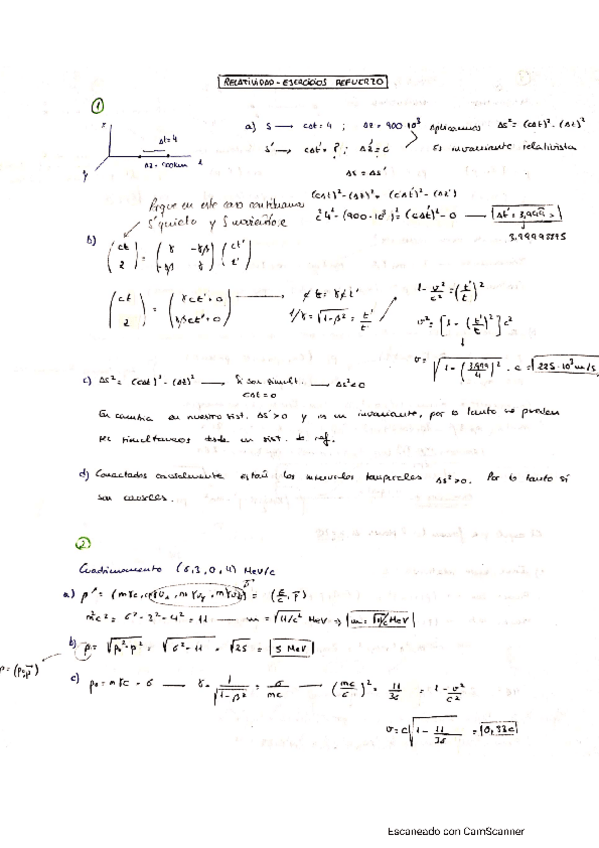 RELATIVIDAD - EJERCICIOS REFUERZO
①
a) S ⟶ cΔt = 4 ; Δz = 900·10³ Aplicamos Δs² = (cΔt)² - (Δz)²
Δt = 4
S' ⟶ cΔt' = ? ; Δz' = 0 Es invariante relativista
y z
Δs = Δs'
(cΔt)² - (Δz)² = (cΔt')² - (Δz')
Porque en este caso
S' quieto y S
c²4² - (900·10³)² = (cΔt')² - 0 ⟶ Δt' = 3,999
3,99998875
b) (ct z) = (γ -γβ -γβ γ) (ct' z')
(ct z) = (γct' + 0 γβct' + 0) ⟶ ct = γct'
1/γ = √1-β² = t'/t
1 - v²/c² = (t'/t)²
v² = [1 - (t'/t)²] c²
v = √1 - (3,999/4)² · c = 225·10³ m/s
c) Δs² = (cΔt)² - (Δz)² ⟶ Si son simult. ⟶ Δs² < 0
cΔt = 0
En cambio en nuestro sist. Δs² > 0 y es un invariante, por lo tanto no pueden
ser simultaneos desde un sist. de ref.
d) Conectados causalmente están los intervalos temporales Δs² > 0. Por lo tanto sí
son causales.
②
Cuadrimomento (6,3,0,4) MeV/c
m²c² = 6² - 3² - 4² = 11 ⟶ m = √11/c² MeV
b) p = √p₀² - p² = √6² - 11 = √25 = 5 MeV
c) p₀ = mγc = 6 ⟶ γ = 1/√1-β² = 6/mc ⟶ (mc/6)² = 11/36 = 1 - v²/c²
v = c√1 - 11/36 = 0,83c
Escaneado con CamScanner